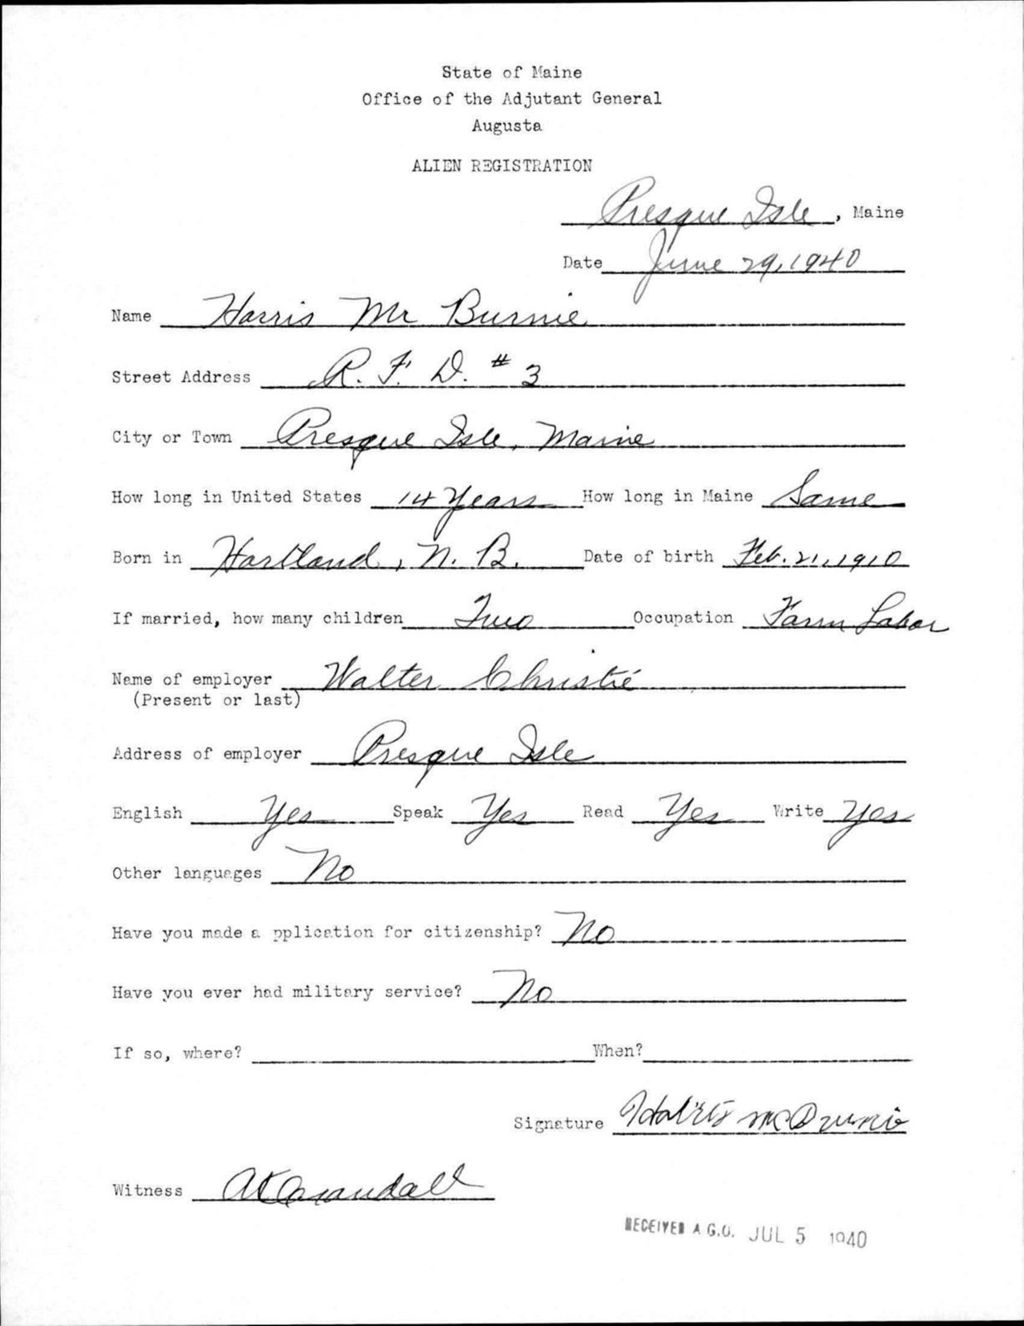 State of Maine
Office of the Adjutant General
Augusta
ALIEN REGISTRATION
Presque Isle, Maine
Date June 29, 1940
Name Harris Mc Burnie
Street Address R. F. D. # 3
City or Town Presque Isle, Maine
How long in United States 14 Years How long in Maine Same
Born in Hartland, N. B. Date of birth Feb. 21, 1910
If married, how many children Two Occupation Farm Labor
Name of employer Walter Christie
(Present or last)
Address of employer Presque Isle
English Yes Speak Yes Read Yes Write Yes
Other languages No
Have you made a pplication for citizenship? No
Have you ever had military service? No
If so, where? When?
Signature McBurnie
Witness Crandall
RECEIVED A.G.O. JUL 5 1940